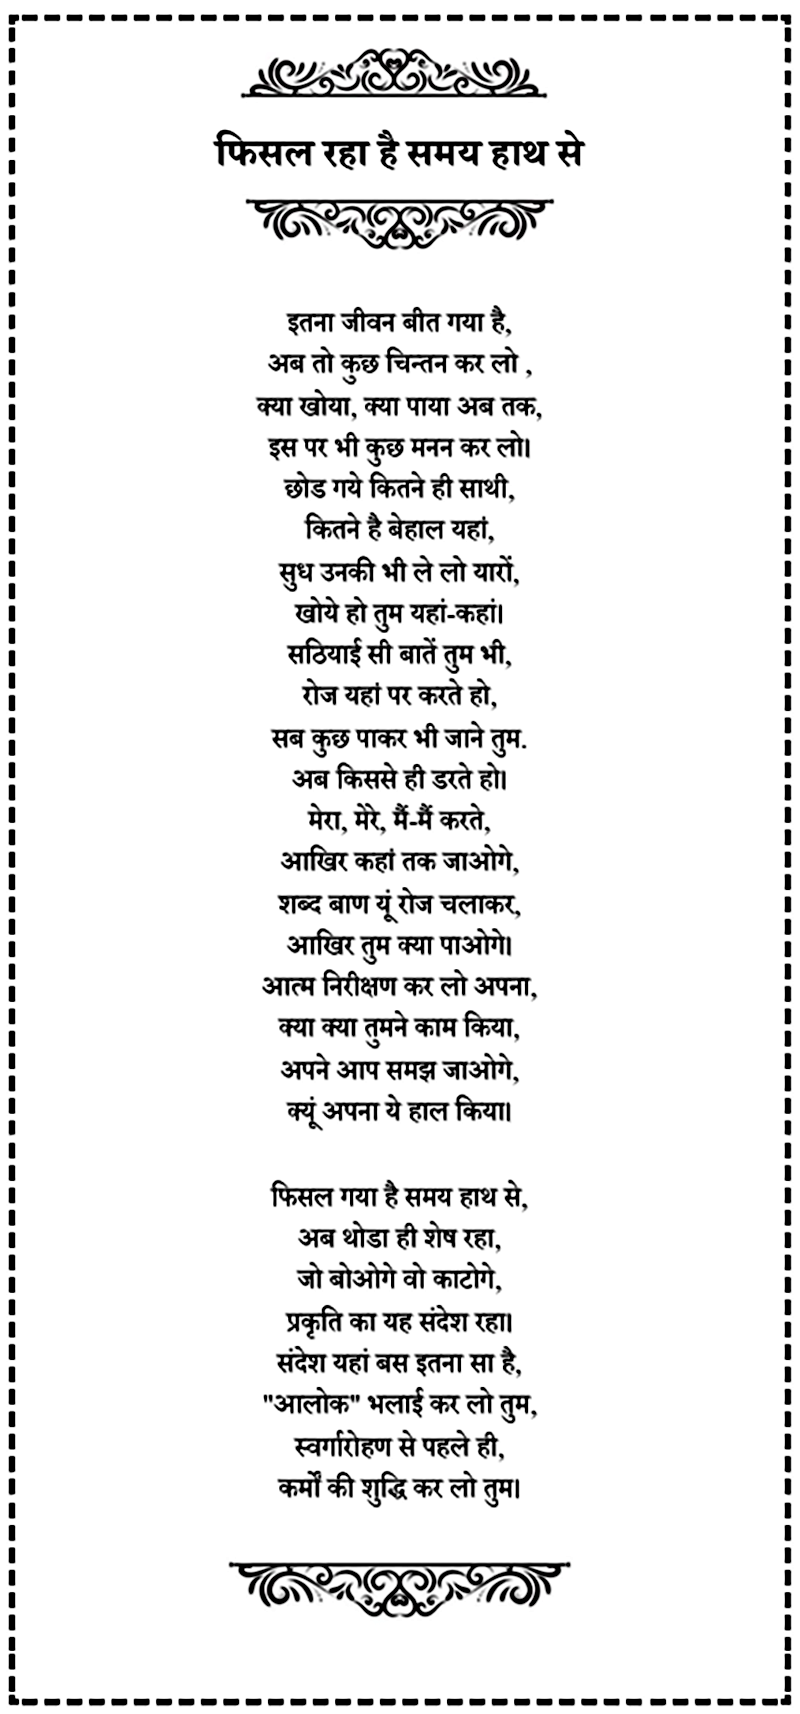 फिसल रहा है समय हाथ से
इतना जीवन बीत गया है,
अब तो कुछ चिन्तन कर लो ,
क्या खोया, क्या पाया अब तक,
इस पर भी कुछ मनन कर लो।
छोड गये कितने ही साथी,
कितने है बेहाल यहां,
सुध उनकी भी ले लो यारों,
खोये हो तुम यहां-कहां।
सठियाई सी बातें तुम भी,
रोज यहां पर करते हो,
सब कुछ पाकर भी जाने तुम.
अब किससे ही डरते हो।
मेरा, मेरे, मैं-मैं करते,
आखिर कहां तक जाओगे,
शब्द बाण यूं रोज चलाकर,
आखिर तुम क्या पाओगे।
आत्म निरीक्षण कर लो अपना,
क्या क्या तुमने काम किया,
अपने आप समझ जाओगे,
क्यूं अपना ये हाल किया।
फिसल गया है समय हाथ से,
अब थोडा ही शेष रहा,
जो बोओगे वो काटोगे,
प्रकृति का यह संदेश रहा।
संदेश यहां बस इतना सा है,
"आलोक" भलाई कर लो तुम,
स्वर्गारोहण से पहले ही,
कर्मों की शुद्धि कर लो तुम।